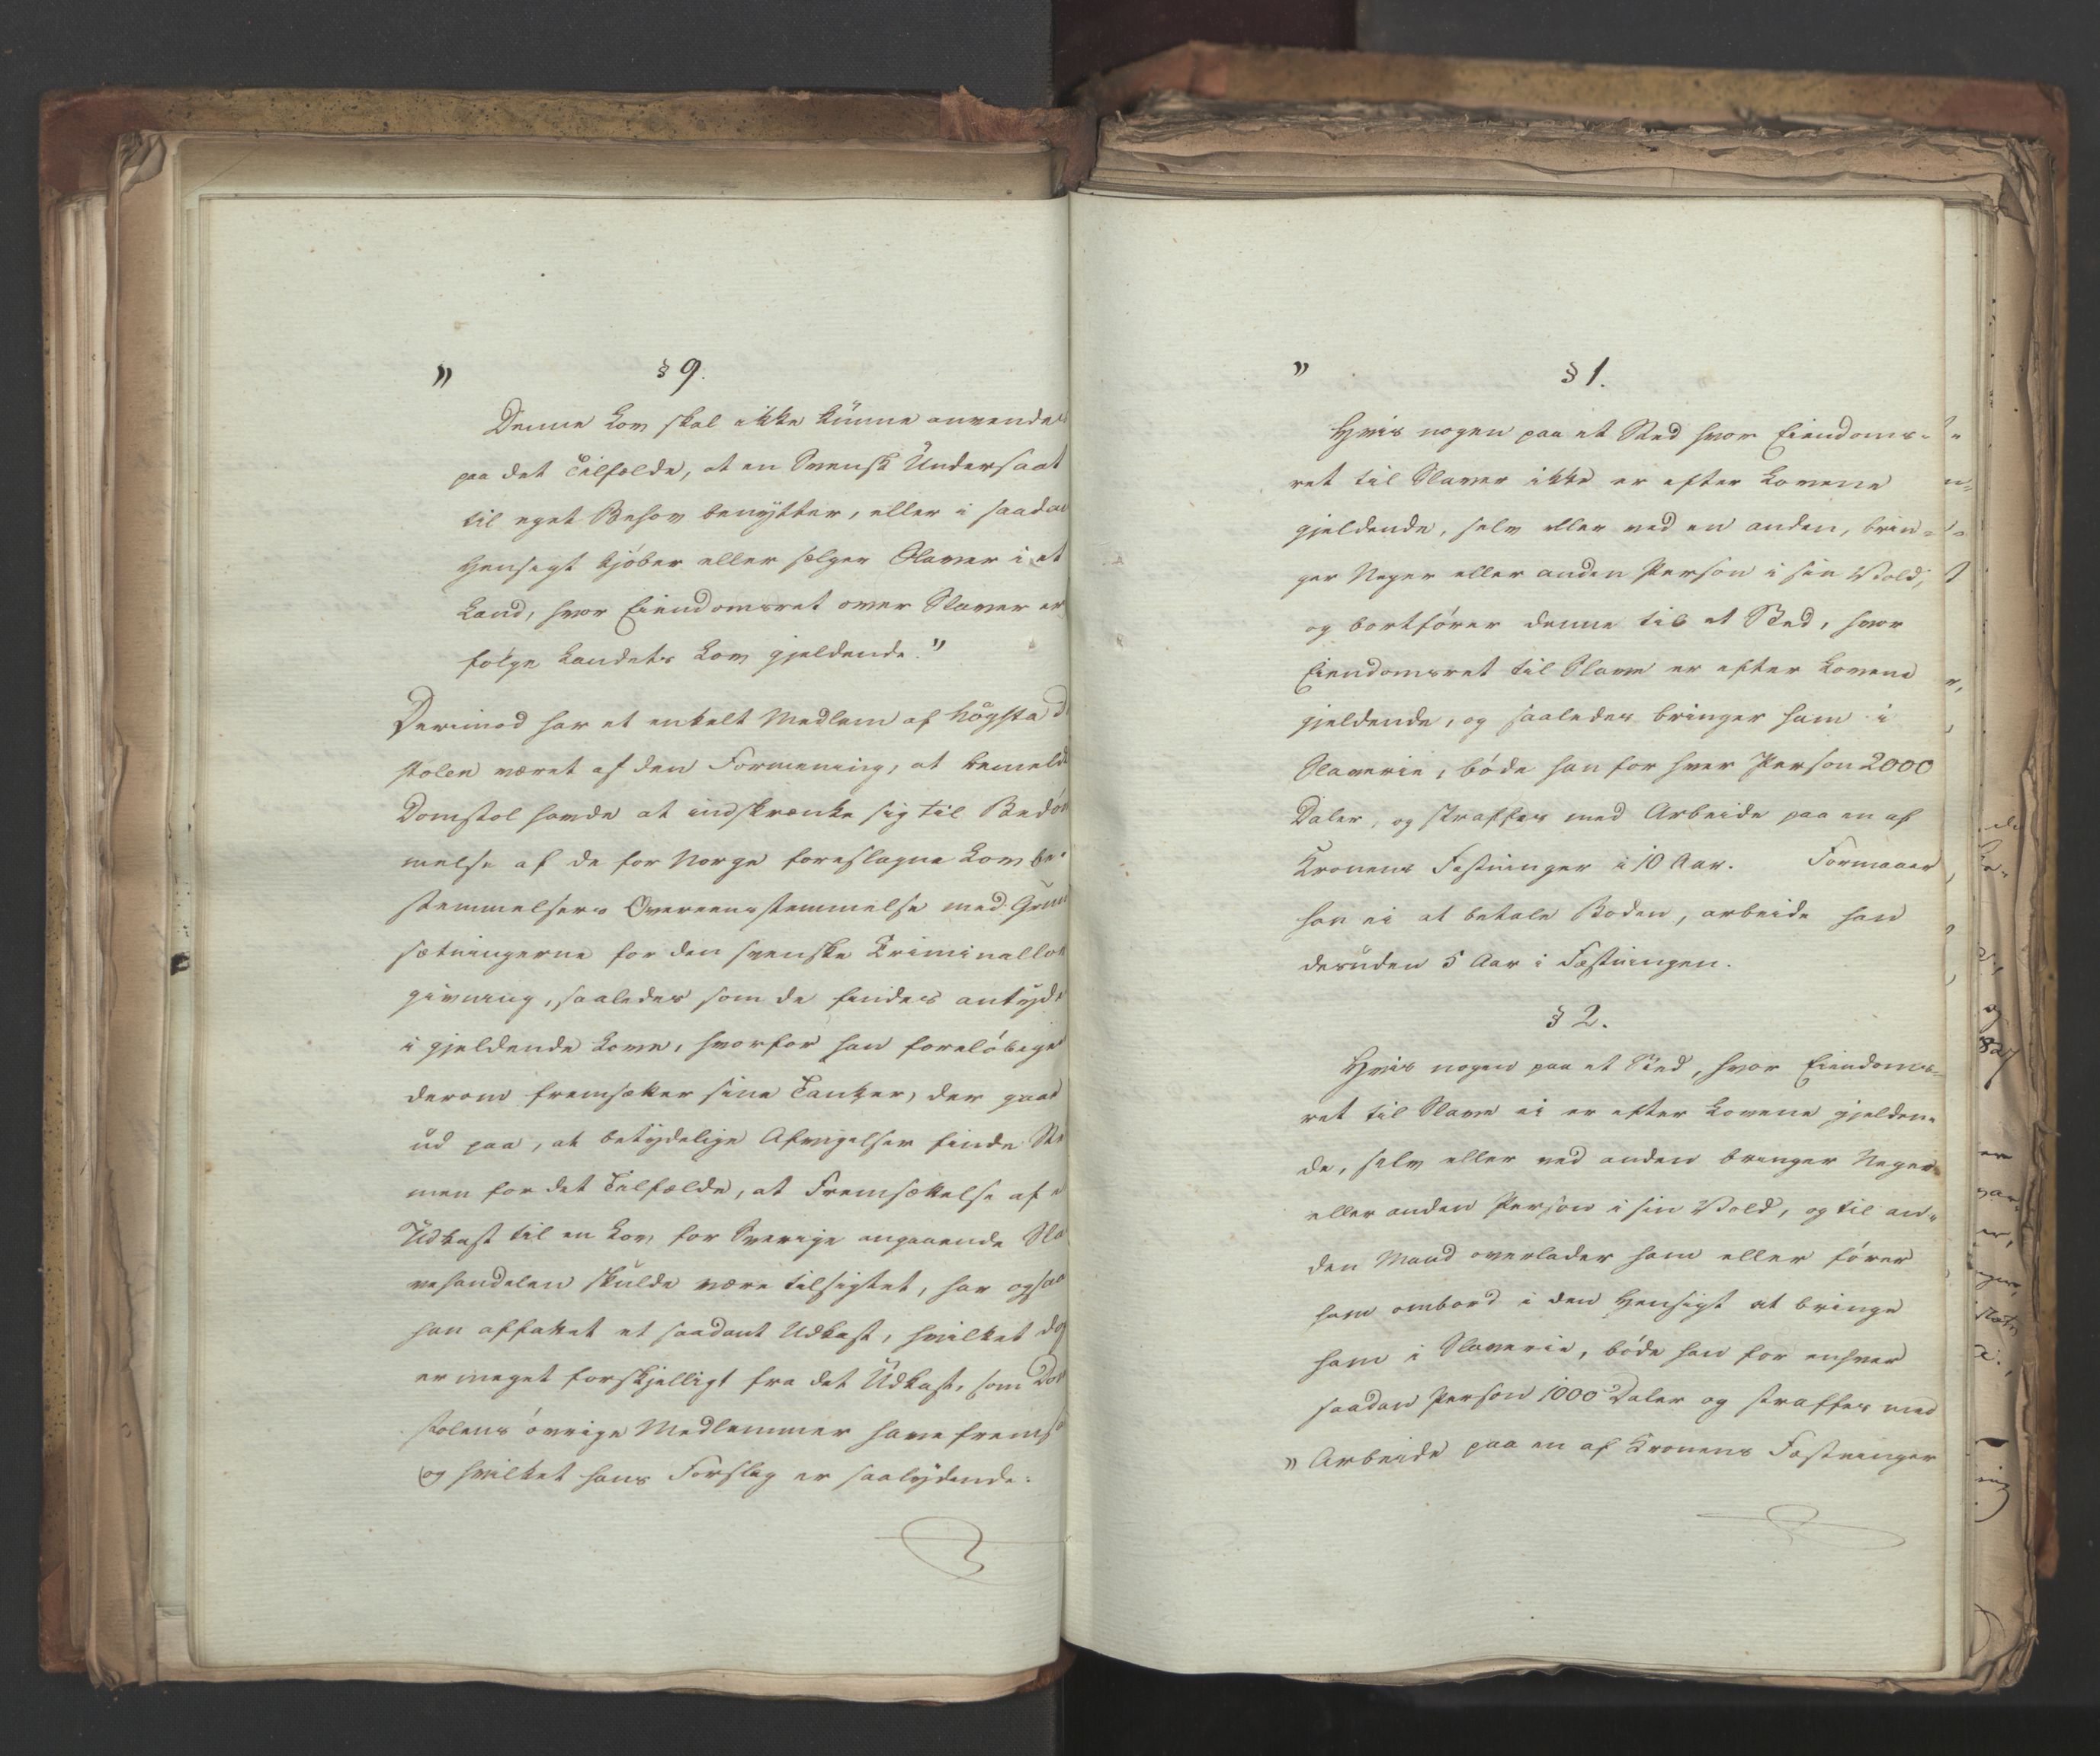 " § 9.
Denne Lov skal ikke kunne anvendes
paa det Tilfælde, at en Svensk Undersaat
til eget Behov benytter, eller i saadan
Hensigt kjöber eller sælger Slaver i et
Land, hvor Eiendomsret over Slaver er
følge Landets Lov gjeldende."
Derimod har et enkelt Medlem af Högsta d
stolen været af den Formening, at bemeldt
Domstol havde at indskrænke sig til Bedöm
melse af de for Norge foreslagne Lov be-
stemmelsers Overeensstemmelse med Grund
sætningerne for den svenske Criminallov
givning, saaledes som de findes antyde
i gjeldende Love, hvorfor han foreløbigen
derom fremsætter sine Tanker, der gaae
ud paa, at betydelige Afvigelser finde Ste
men for det Tilfælde, at Fremsættelse af e
Udkast til en Lov for Sverige angaaende Sla
vehandelen skulde være tilsigtet, har ogsaa
han affattet et saadant Udkast, hvilket dog
er meget forskjelligt fra det Udkast, som Dom
stolens øvrige Medlemmer have frems
og hvilket hans Forslag er saalydende:
" § 1.
Hvis nogen paa et Sted hvor Eiendoms-
ret til Slaver ikke er efter Lovene
gjeldende, selv eller ved en anden, brin-
ger Neger eller anden Person i sin Vold,
og bortfører denne til et Sted, hvor
Eiendomsret til Slave er efter Lovene
gjeldende, og saaledes bringer ham i
Slaverie, bøde han for hver Person 2000
Daler, og straffes med Arbeide paa en af
Kronens Festninger i 10 Aar. Formaaer
han ei at betale Boden, arbeide han
desuden 5 Aar i Fæstningen.
§ 2.
Hvis nogen paa et Sted, hvor Eiendoms-
ret til Slave ei er efter Lovene gjelden-
de, selv eller ved anden bringer Neger
eller anden Person i sin Vold, og til an-
den Mand overlader ham eller fører
ham ombord i den Hensigt at bringe
ham i Slaverie, bøde han for enhver
saadan Person 1000 Daler og straffes med
" Arbeide paa en af Kronens Fæstninger